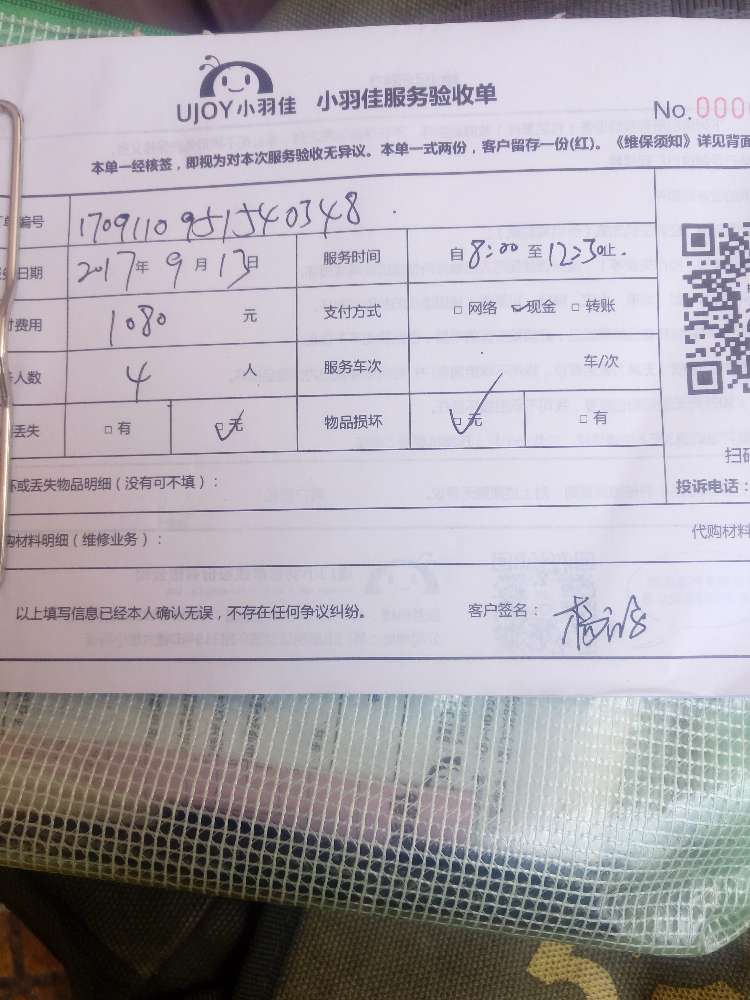 UJOY小羽佳 小羽佳服务验收单
No.000
本单一经核签，即视为对本次服务验收无异议。本单一式两份，客户留存一份(红)。《维保须知》详见背面
单编号 1709110951540348
日期 2017年9月13日 服务时间 自8:00至12:30止
费用 1080 元 支付方式 □网络 ✓现金 □转账
人数 4 人 服务车次 车/次
丢失 □有 ☑无 物品损坏 ☑无 □有
扫码
坏或丢失物品明细（没有可不填）： 投诉电话：
购材料明细（维修业务）： 代购材料
以上填写信息已经本人确认无误，不存在任何争议纠纷。 客户签名：